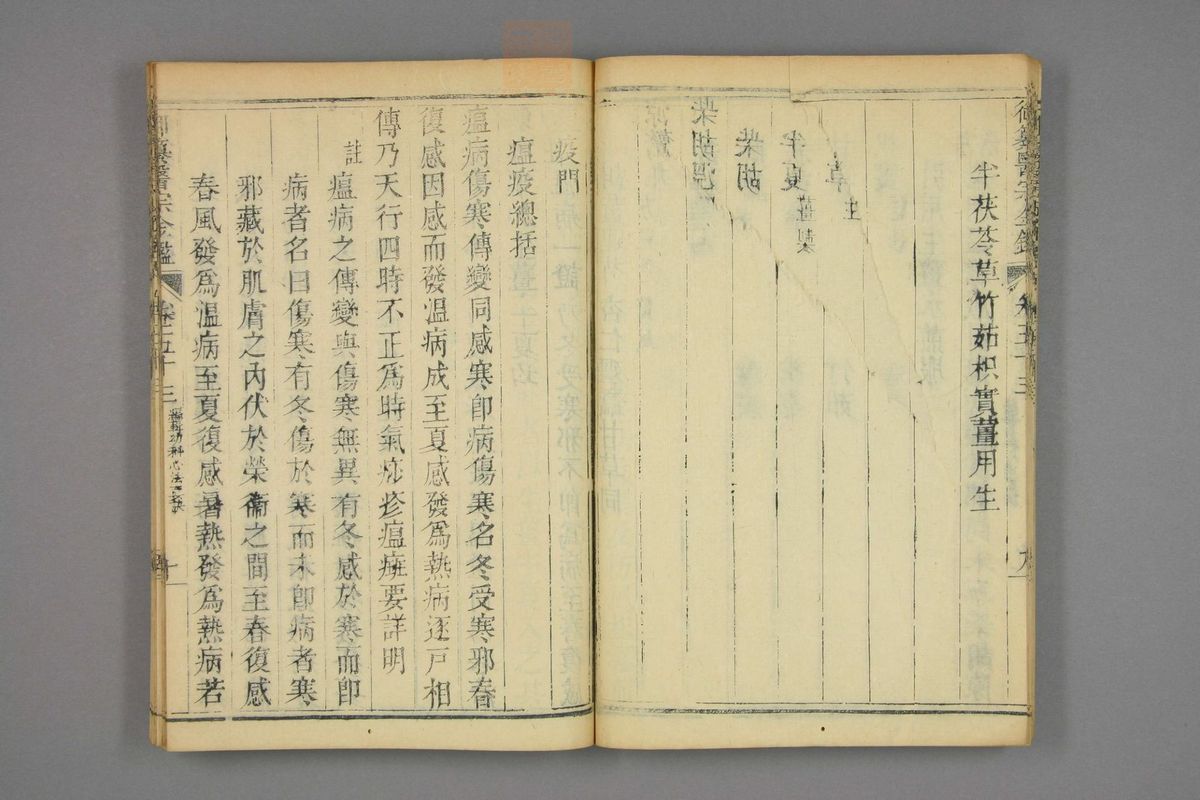 御纂醫宗金鑑
卷五十三
半茯苓草竹茹枳實薑用生
草 生
半夏 薑製
柴胡
柴胡
疫門
瘟疫總括
瘟病傷寒傳變同感寒卽病傷寒名冬受寒邪春
復感因感而發溫病成至夏感發爲熱病逐戸相
傳乃天行四時不正爲時氣痧疹瘟㾮要詳明
註
瘟病之傳變與傷寒無異有冬感於寒而卽
病者名曰傷寒有冬傷於寒而未卽病者寒
邪藏於肌膚之內伏於榮衞之間至春復感
春風發爲溫病至夏復感暑熱發爲熱病若
醫宗金鑑
卷五十三
編輯幼科心法要訣
十